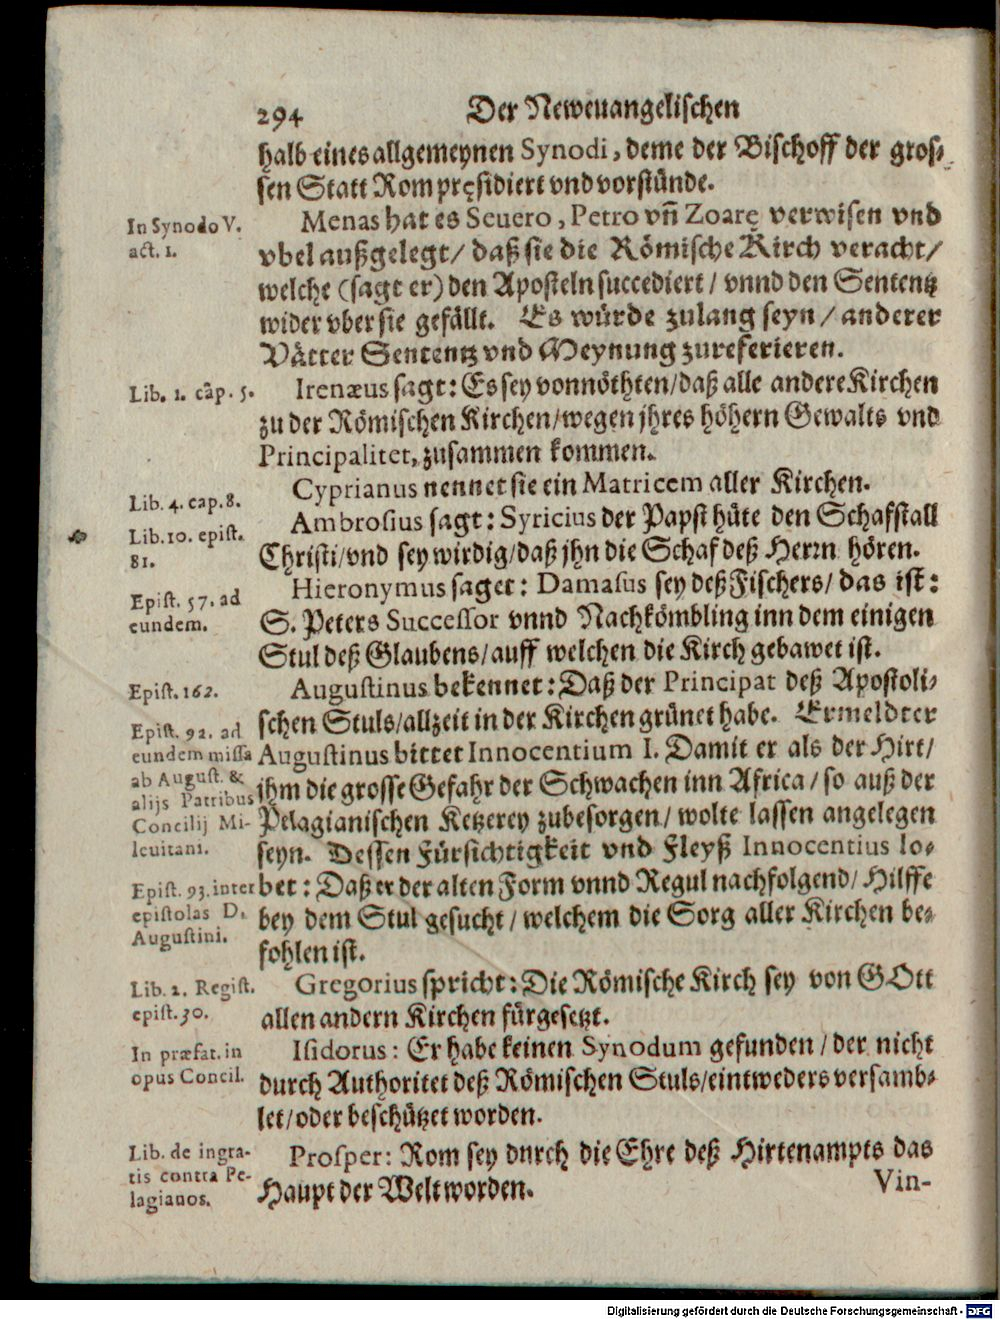 294 Der Neweuangelischen
halb eines allgemeynen Synodi, deme der Bischoff der gros-
sen Statt Rom pręsidiert vnd vorstünde.
In Synodo V.
act. 1.
Menas hat es Seuero, Petro vñ Zoarę verwisen vnd
vbel außgelegt/ daß sie die Römische Kirch veracht/
welche (sagt er) den Aposteln succediert/ vnnd den Sententz
wider vber sie gefällt. Es würde zulang seyn/ anderer
Vätter Sententz vnd Meynung zureferieren.
Lib. 1. cap. 5.
Irenæus sagt: Es sey vonnöthten/daß alle andere Kirchen
zu der Römischen Kirchen/wegen jhres höhern Gewalts vnd
Principalitet, zusammen kommen.
Lib. 4. cap. 8.
Cyprianus nennet sie ein Matricem aller Kirchen.
Lib. 10. epist.
81.
Ambrosius sagt: Syricius der Papst hüte den Schafstall
Christi/vnd sey wirdig/daß jhn die Schaf deß Herrn hören.
Epist. 57. ad
eundem.
Hieronymus saget: Damasus sey deß Fischers/ das ist:
S. Peters Successor vnnd Nachkömbling inn dem einigen
Stul deß Glaubens/auff welchen die Kirch gebawet ist.
Epist. 162.
Augustinus bekennet: Daß der Principat deß Apostoli-
schen Stuls/allzeit in der Kirchen grünet habe. Ermeldter
Epist. 92. ad
eundem missa
ab August. &
alijs Patribus
Concilij Mi-
leuitani.
Augustinus bittet Innocentium I. Damit er als der Hirt/
ihm die grosse Gefahr der Schwachen inn Africa/ so auß der
Pelagianischen Ketzerey zubesorgen/ wolte lassen angelegen
seyn. Dessen Fürsichtigkeit vnd Fleyß Innocentius lo-
Epist. 93. inter
epistolas D.
Augustini.
bet: Daß er der alten Form vnnd Regul nachfolgend/ Hilffe
bey dem Stul gesucht/ welchem die Sorg aller Kirchen be-
fohlen ist.
Lib. 2. Regist.
epist. 30.
Gregorius spricht: Die Römische Kirch sey von GOtt
allen andern Kirchen fürgesetzt.
In præfat. in
opus Concil.
Isidorus: Er habe keinen Synodum gefunden/ der nicht
durch Authoritet deß Römischen Stuls/eintweders versamb-
let/oder beschützet worden.
Lib. de ingra-
tis contra Pe-
lagianos.
Prosper: Rom sey durch die Ehre deß Hirtenampts das
Haupt der Welt worden.
Vin-
Digitalisierung gefördert durch die Deutsche Forschungsgemeinschaft - DFG